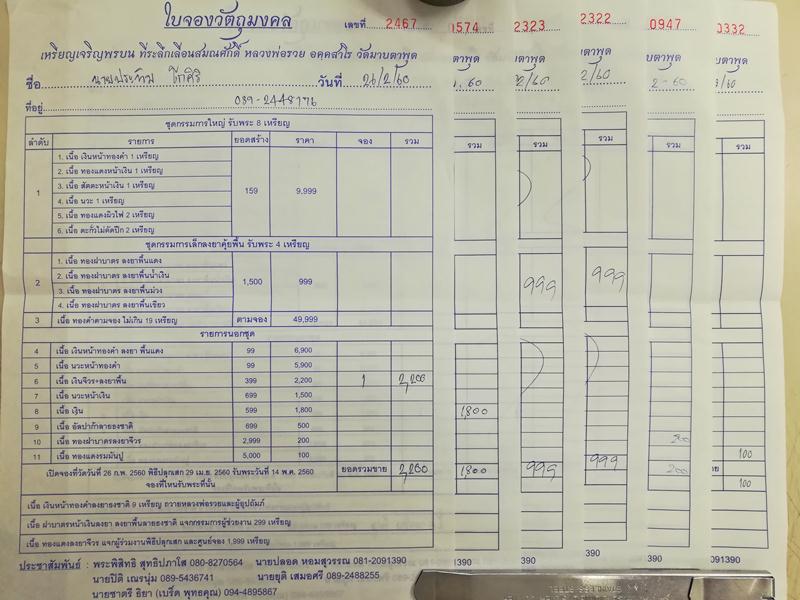 ใบจองวัตถุมงคล
เลขที่ 2467
เหรียญเจริญพรบน ที่ระลึกเลื่อนสมณศักดิ์ หลวงพ่อรวย อคฺคสาโร วัดมาบตาพุด
ชื่อ นายประทาน วันที่ 26/2/60
ที่อยู่ 089-2448176
ชุดกรรมการใหญ่ รับพระ 8 เหรียญ
ลำดับ รายการ ยอดสร้าง ราคา จอง รวม
1 159 9,999
1. เนื้อ เงินหน้าทองคำ 1 เหรียญ
2. เนื้อ ทองแดงหน้าเงิน 1 เหรียญ
3. เนื้อ สัตตะหน้าเงิน 1 เหรียญ
4. เนื้อ นวะ 1 เหรียญ
5. เนื้อ ทองแดงผิวไฟ 2 เหรียญ
6. เนื้อ ตะกั่วไม่ตัดปีก 2 เหรียญ
ชุดกรรมการเล็กลงยาคุ้ยพื้น รับพระ 4 เหรียญ
2 1,500 999
1. เนื้อ ทองฝาบาตร ลงยาพื้นแดง
2. เนื้อ ทองฝาบาตร ลงยาพื้นน้ำเงิน
3. เนื้อ ทองฝาบาตร ลงยาพื้นม่วง
4. เนื้อ ทองฝาบาตร ลงยาพื้นเขียว
3 เนื้อ ทองคำตามจอง ไม่เกิน 19 เหรียญ ตามจอง 49,999
รายการนอกชุด
4 เนื้อ เงินหน้าทองคำ ลงยา พื้นแดง 99 6,900
5 เนื้อ นวะหน้าทองคำ 99 5,900
6 เนื้อ เงินจีวร+ลงยาพื้น 399 2,200 1 2,200
7 เนื้อ นวะหน้าเงิน 699 1,500
8 เนื้อ เงิน 599 1,800
9 เนื้อ อัลปาก้าลายธงชาติ 699 500
10 เนื้อ ทองฝาบาตรลงยาจีวร 2,999 200
11 เนื้อ ทองแดงรมมันปู 5,000 100
เปิดจองที่วัดวันที่ 26 ก.พ. 2560 พิธีปลุกเสก 29 เม.ย. 2560 รับพระวันที่ 14 พ.ค. 2560
จองที่ไหนรับพระที่นั้น
ยอดรวมขาย 2,200
เนื้อ เงินหน้าทองคำ ลงยาลายธงชาติ 9 เหรียญ ถวายหลวงพ่อรวยและผู้อุปถัมภ์
เนื้อ ฝาบาตรหน้าเงินลงยา ลงยาพื้นลายธงชาติ แจกกรรมการผู้ช่วยงาน 299 เหรียญ
เนื้อ ทองแดงลงยาจีวร แจกผู้ร่วมงานพิธีปลุกเสก และศูนย์จอง 1,999 เหรียญ
ประชาสัมพันธ์ : พระพิสิทธิ์ สุทธิปภาโส 080-8270564 นายปลอด หอมสุวรรณ 081-2091390
นายปิติ เณรนุ่ม 089-5436741 นายยุติ เสมอศรี 089-2488255
นายชาตรี ธิยา (เบริ์ด พุทธคุณ) 094-4895867
1574
ตาพุด
. 60
รวม
1,800
1,800
1390
2323
เตาพุด
2/60
รวม
999
999
390
2322
าตาพุด
2/60
รวม
999
999
390
0947
บตาพุด
2-60
รวม
200
200
390
0332
บตาพุด
/60
รวม
100
าย 100
091390
STAINLESS STEEL